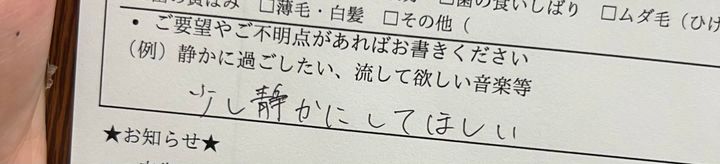 の黄ばみ □薄毛・白髪 □歯の食いしばり □ムダ毛（ひげ
□その他（
• ご要望やご不明点があればお書きください
（例）静かに過ごしたい、流して欲しい音楽等
少し静かにしてほしい
★お知らせ★